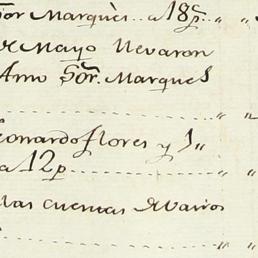 ſor Marquès.. a 18 p.. " "
Mayo llevaron
Amo Sor. Marques
" "
Leonardo flores y J "
a 12 p. " "
las cuentas de Varios
" "